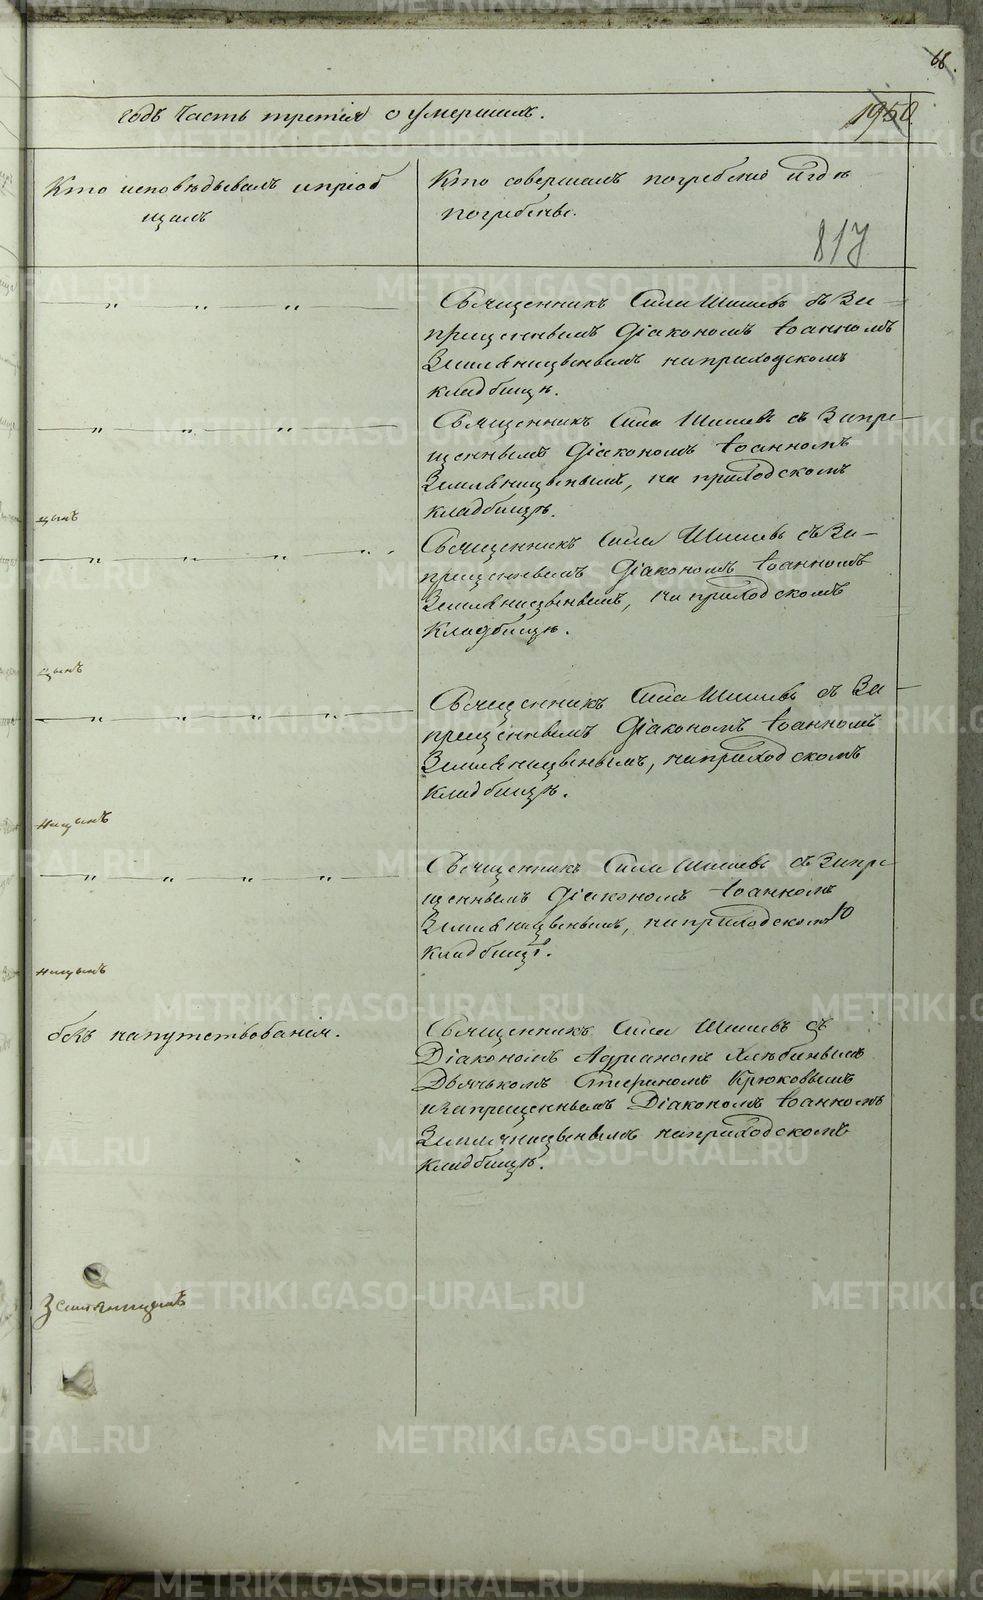 66.
годъ Часть третія о умершихъ.
1950
Кто исповѣдывалъ и пріоб
щалъ
Кто совершалъ погребеніе и гдѣ
погребены.
817
Священникъ Сила Шишевъ съ За-
прещеннымъ Діакономъ Іоанномъ
Земляницынымъ на приходскомъ
кладбищѣ.
Священникъ Сила Шишевъ съ Запре-
щеннымъ Діакономъ Іоанномъ
Земляницынымъ, на приходскомъ
кладбищѣ.
цынъ
Священникъ Сила Шишевъ съ За-
прещеннымъ Діакономъ Іоанномъ
Земляницынымъ, на приходскомъ
кладбищѣ.
цынъ
Священникъ Сила Шишевъ съ За-
прещеннымъ Діакономъ Іоанномъ
Земляницынымъ, на приходскомъ
кладбищѣ.
ницынъ
Священникъ Сила Шишевъ съ Запре-
щеннымъ Діакономъ Іоанномъ
Земляницынымъ, на приходскомъ
кладбищѣ.
ницынъ
безъ напутствованія.
Священникъ Сила Шишевъ съ
Діакономъ Адріаномъ Хлѣбинымъ
Дьячькомъ Стефаномъ Крюковымъ
и запрещеннымъ Діакономъ Іоанномъ
Земляницынымъ на приходскомъ
кладбищѣ.
Земляницынъ
METRIKI.GASO-URAL.RU